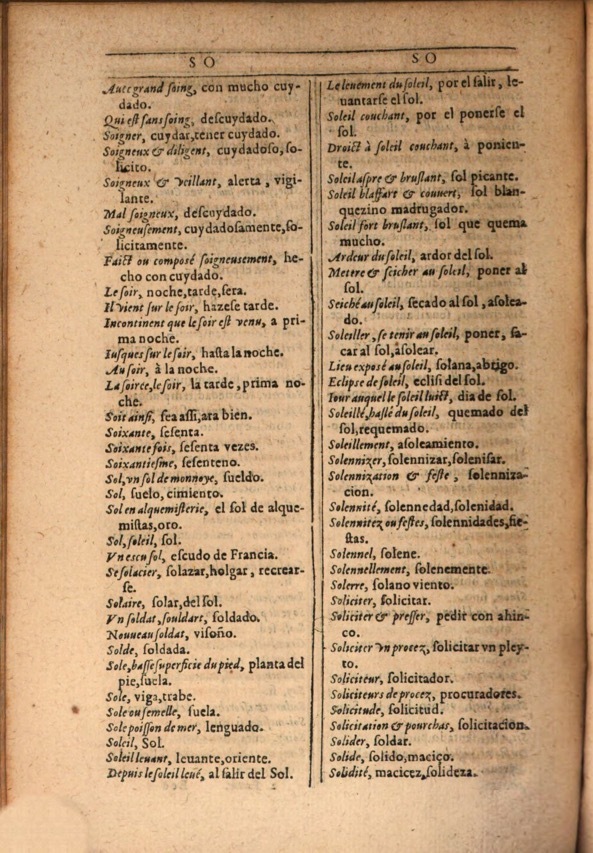 SO
Auec grand soing, con mucho cuy-
dado.
Qui est sans soing, descuydado.
Soigner, cuydar, tener cuydado.
Soigneux & diligent, cuydadoso, so-
licito.
Soigneux & veillant, alerta, vigi-
lante.
Mal soigneux, descuydado.
Soigneusement, cuydadosamente, so-
licitamente.
Faict ou composé soigneusement, he-
cho con cuydado.
Le soir, noche, tarde, sera.
Il vient sur le soir, hazese tarde.
Incontinent que le soir est venu, a pri-
ma noche.
Iusques sur le soir, hasta la noche.
Au soir, à la noche.
La soiree, le soir, la tarde, prima no-
che.
Soit ainsi, sea assi, ata bien.
Soixante, sesenta.
Soixante fois, sesenta vezes.
Soixantiesme, sesenteno.
Sol, vn sol de monnoye, sueldo.
Sol, suelo, cimiento.
Sol en alquemisterie, el sol de alque-
mistas, oro.
Sol, soleil, sol.
Vn escu sol, escudo de Francia.
Se solacier, solazar, holgar, recrear-
se.
Solaire, solar, del sol.
Vn soldat, souldart, soldado.
Nouueau soldat, visoño.
Solde, soldada.
Sole, basse superficie du pied, planta del
pie, suela.
Sole, viga, trabe.
Sole ou semelle, suela.
Sole poisson de mer, lenguado.
Soleil, Sol.
Soleil leuant, leuante, oriente.
Depuis le soleil leué, al salir del Sol.
SO
Le leuement du soleil, por el salir, le-
uantarse el sol.
Soleil couchant, por el ponerse el
sol.
Droict à soleil couchant, à ponien-
te.
Soleil aspre & bruslant, sol picante.
Soleil blaffart & couuert, sol blan-
quezino madrugador.
Soleil fort bruslant, sol que quema
mucho.
Ardeur du soleil, ardor del sol.
Metere & seicher au soleil, poner al
sol.
Seiché au soleil, secado al sol, asolea-
do.
Soleiller, se tenir au soleil, poner, sa-
car al sol, asolear.
Lieu exposé au soleil, solana, abrigo.
Eclipse de soleil, eclisi del sol.
Iour auquel le soleil luict, dia de sol.
Soleillé, haslé du soleil, quemado del
sol, requemado.
Soleillement, asoleamiento.
Solennizer, solennizar, solenisar.
Solennization & feste, solenniza-
cion.
Solennité, solennedad, solenidad.
Solennitez ou festes, solennidades, fie-
stas.
Solennel, solene.
Solennellement, solenemente.
Solerre, solano viento.
Soliciter, solicitar.
Soliciter & presser, pedir con ahin-
co.
Soliciter vn procez, solicitar vn pley-
to.
Soliciteur, solicitador.
Soliciteurs de procez, procuradores.
Solicitude, solicitud.
Solicitation & pourchas, solicitacion.
Solider, soldar.
Solide, solido, maciço.
Solidité, macicez, solideza.